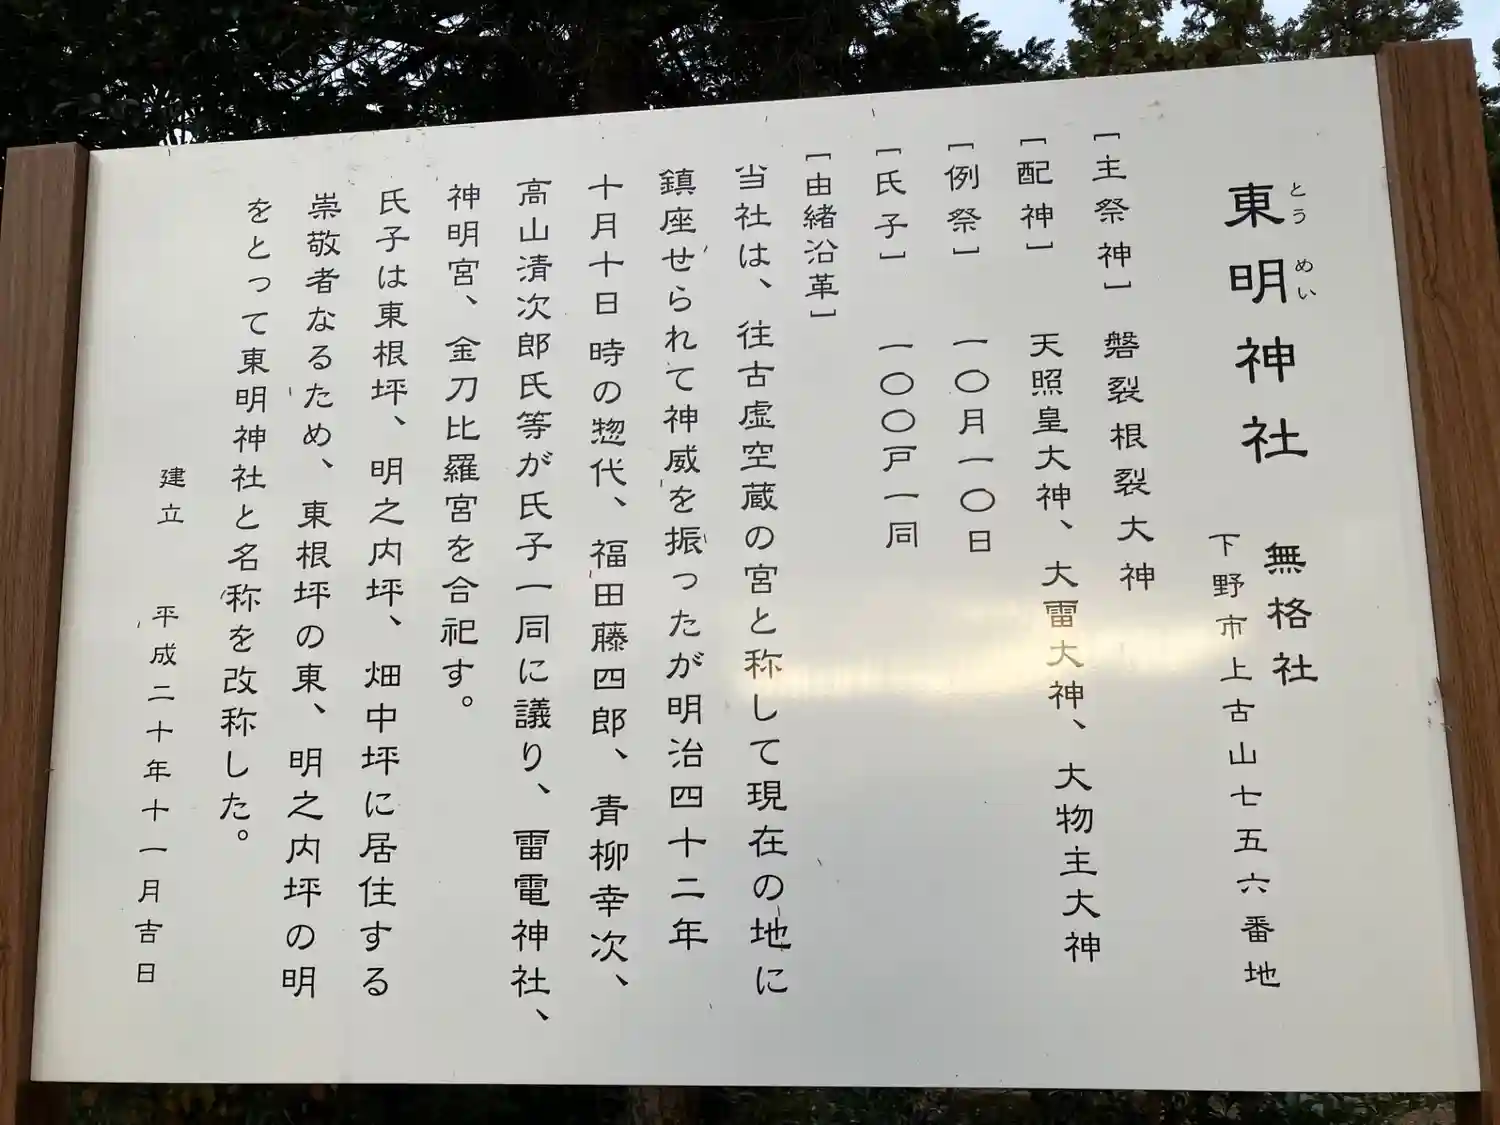 東明神社 無格社
とうめい
下野市上古山七五六番地
[主祭神] 磐裂根裂大神
[配神] 天照皇大神、大雷大神、大物主大神
[例祭] 一〇月一〇日
[氏子] 一〇〇戸一同
[由緒沿革]
当社は、往古虚空蔵の宮と称して現在の地に
鎮座せられて神威を振ったが明治四十二年
十月十日 時の惣代、福田藤四郎、青柳幸次、
高山清次郎氏等が氏子一同に議り、雷電神社、
神明宮、金刀比羅宮を合祀す。
氏子は東根坪、明之内坪、畑中坪に居住する
崇敬者なるため、東根坪の東、明之内坪の明
をとって東明神社と名称を改称した。
建立 平成二十年十一月吉日